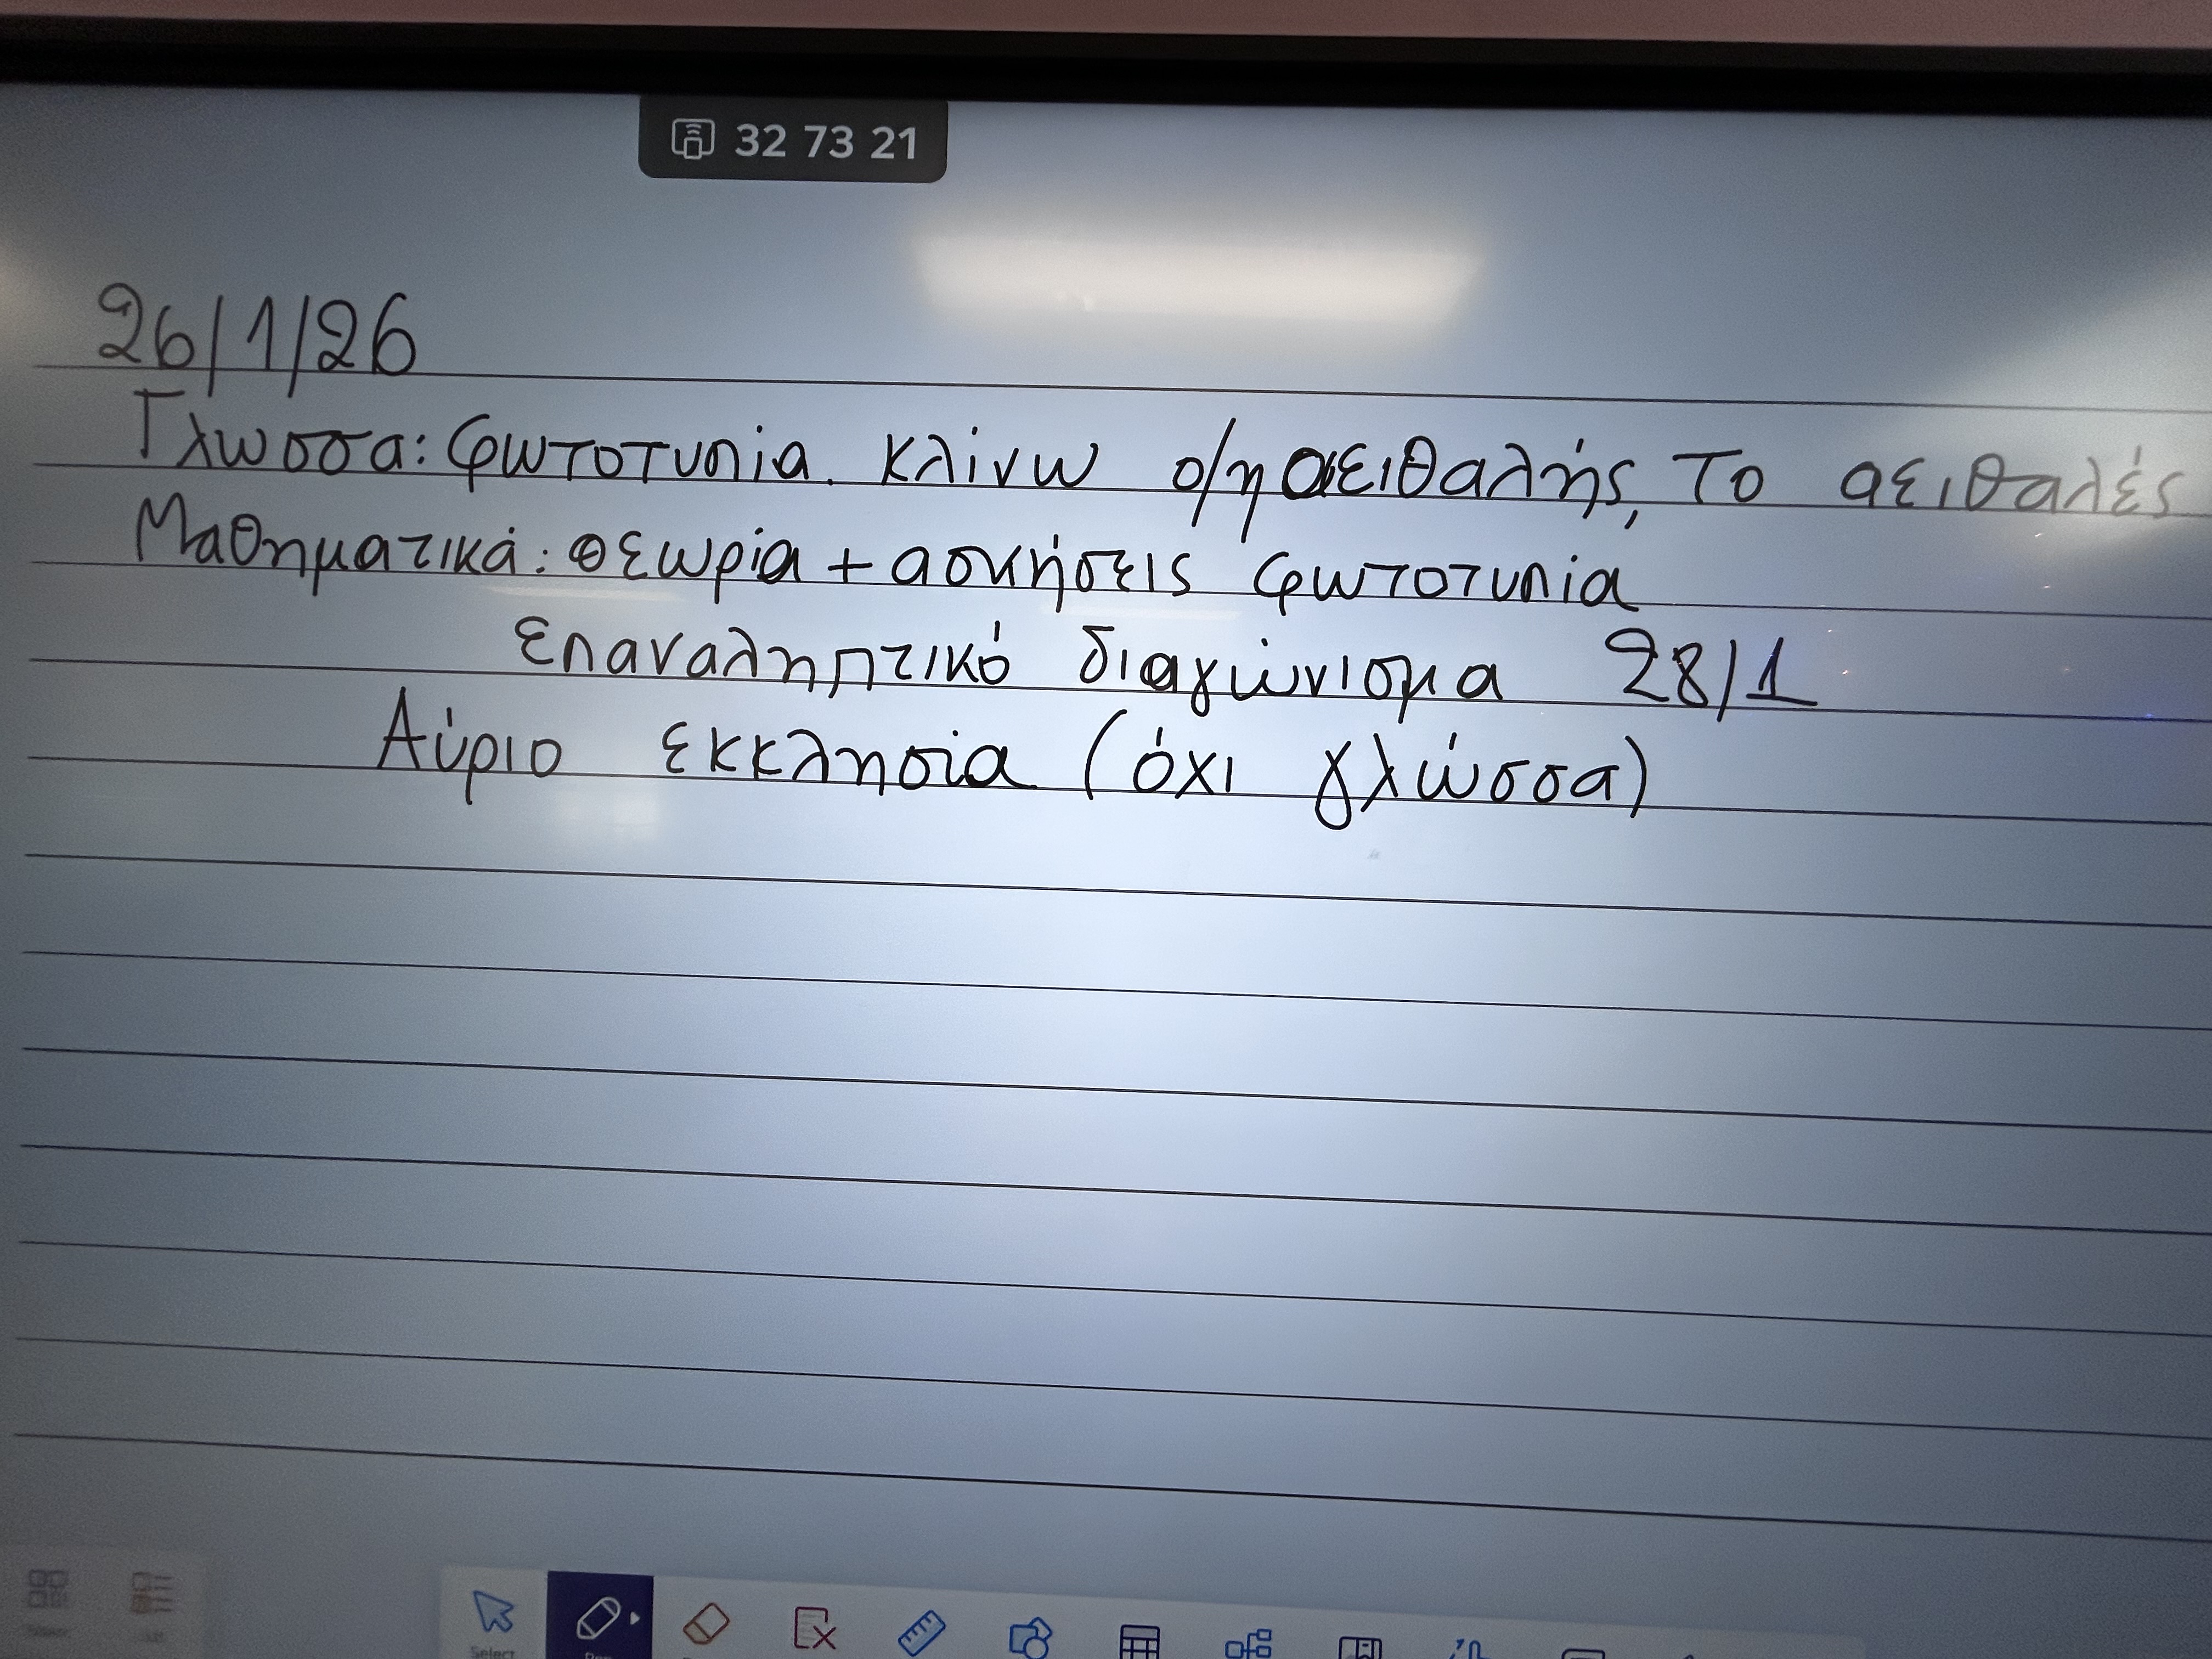 32 73 21
26/1/26
Γλωσσα: φωτοτυπία. κλίνω ο/η αειθαλής, το αειθαλές
Μαθηματικά: θεωρία + ασκήσεις φωτοτυπία
επαναληπτικό διαγώνισμα 28/1
Αύριο εκκλησία (όχι γλώσσα)
Select